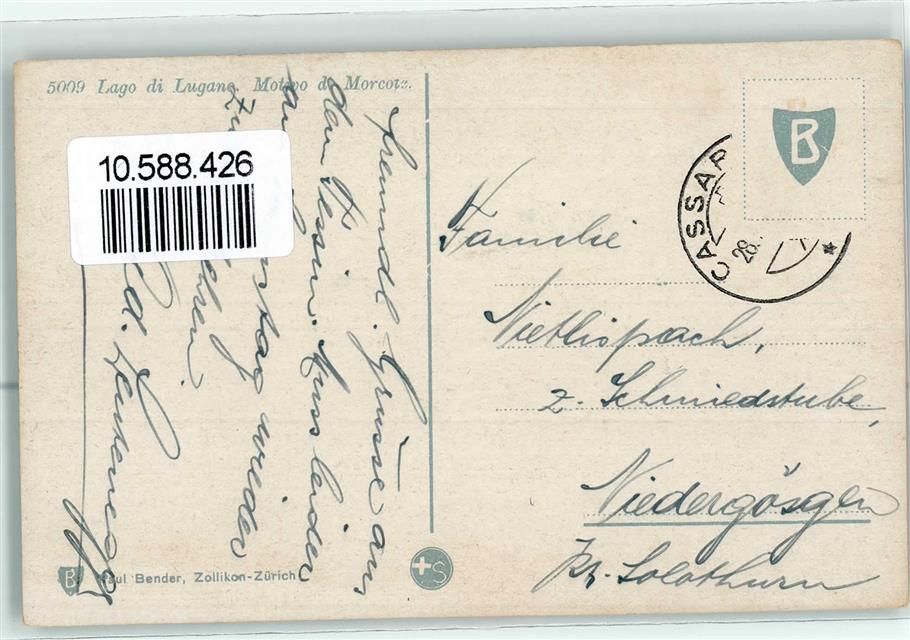 5009 Lago di Lugano. Motivo di Morcote.
10.588.426
Freundl. Grüsse aus
dem Tessin. Muss leider
am
wieder
Familie
Nietlispach,
z. Schmiedstube,
Niedergösgen
Kt. Solothurn
CASSAR
28.
B
B
Paul Bender, Zollikon-Zürich
+S